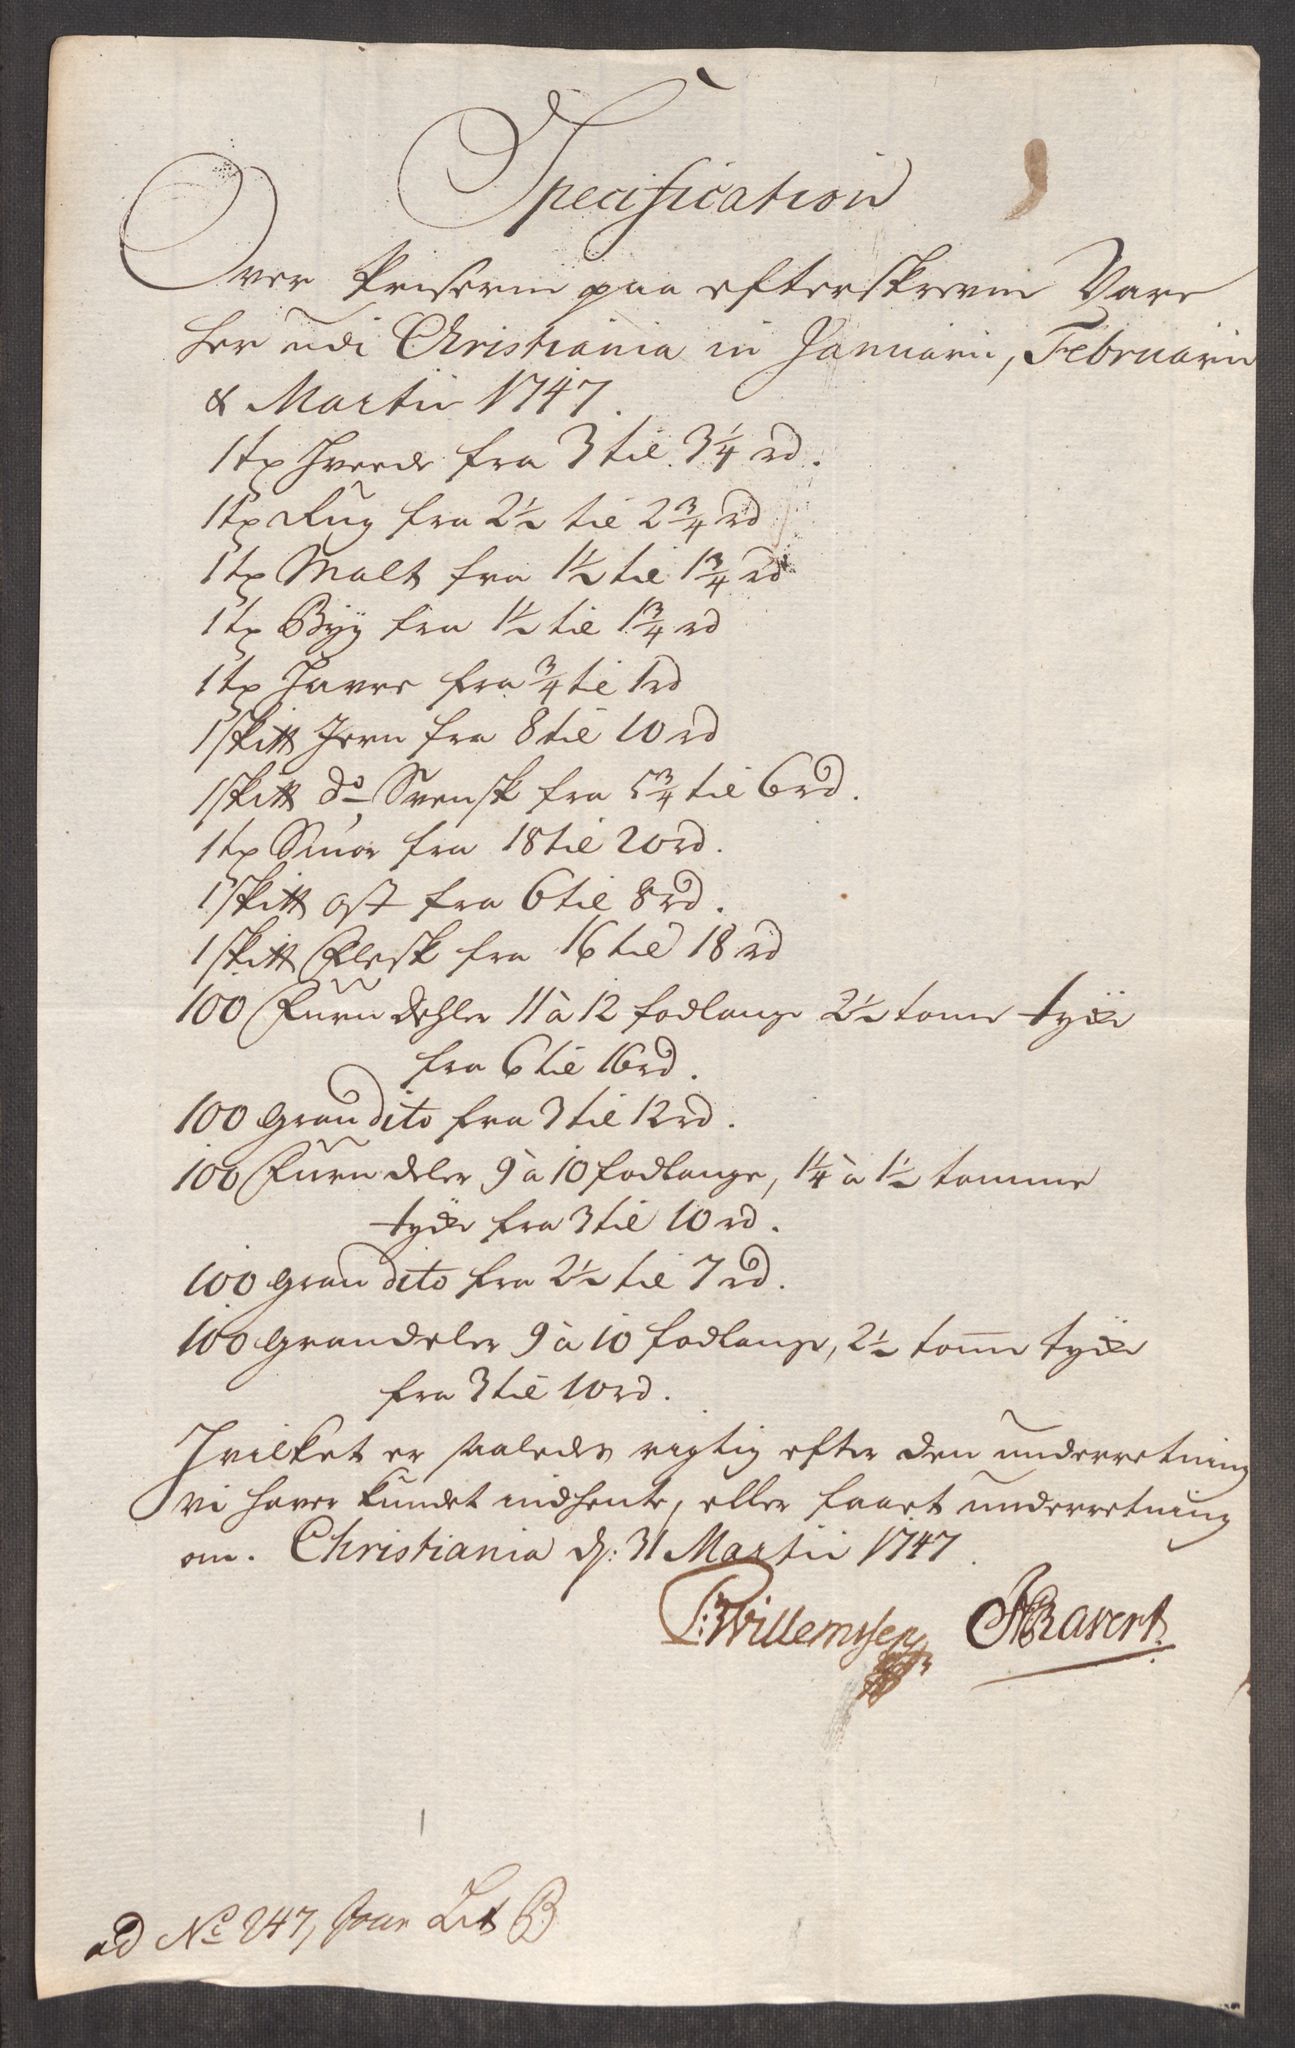 Specification
Over Priserne paa efterskrevne Vare
her udi Christiania in Januarii, Februarii
& Martii 1747.
1 tø Hvede fra 3 til 3 1/4 rd.
1 tø Rug fra 2 1/2 til 2 3/4 rd
1 tø Malt fra 1 1/2 til 1 3/4 rd
1 tø Byg fra 1 1/2 til 1 3/4 rd
1 tø Havre fra 3/4 til 1 rd
1 sk℔ Jern fra 8 til 10 rd
1 sk℔ do Svensk fra 5 3/4 til 6 rd.
1 tø Smør fra 18 til 20 rd.
1 sk℔ ost fra 6 til 8 rd.
1 sk℔ Flesk fra 16 til 18 rd
100 Furu dehler 11 à 12 fodlange 2 1/2 tome tycke
fra 6 til 16 rd.
100 gran dito fra 3 til 12 rd.
100 Furu deler 9 à 10 fodlange, 1 1/4 à 1 1/2 tomme
tycke fra 3 til 10 rd.
100 gran dito fra 2 1/2 til 7 rd.
100 grandeler 9 à 10 fodlange, 2 1/2 tome tycke
fra 3 til 10 rd.
Hvilket er saaledes rigtig efter den underretning
vi haver kundet indhente, eller faaet underretning
om. Christiania d: 31 Martii 1747.
P: Willemssen Ravert.
ad No 247, Lit B